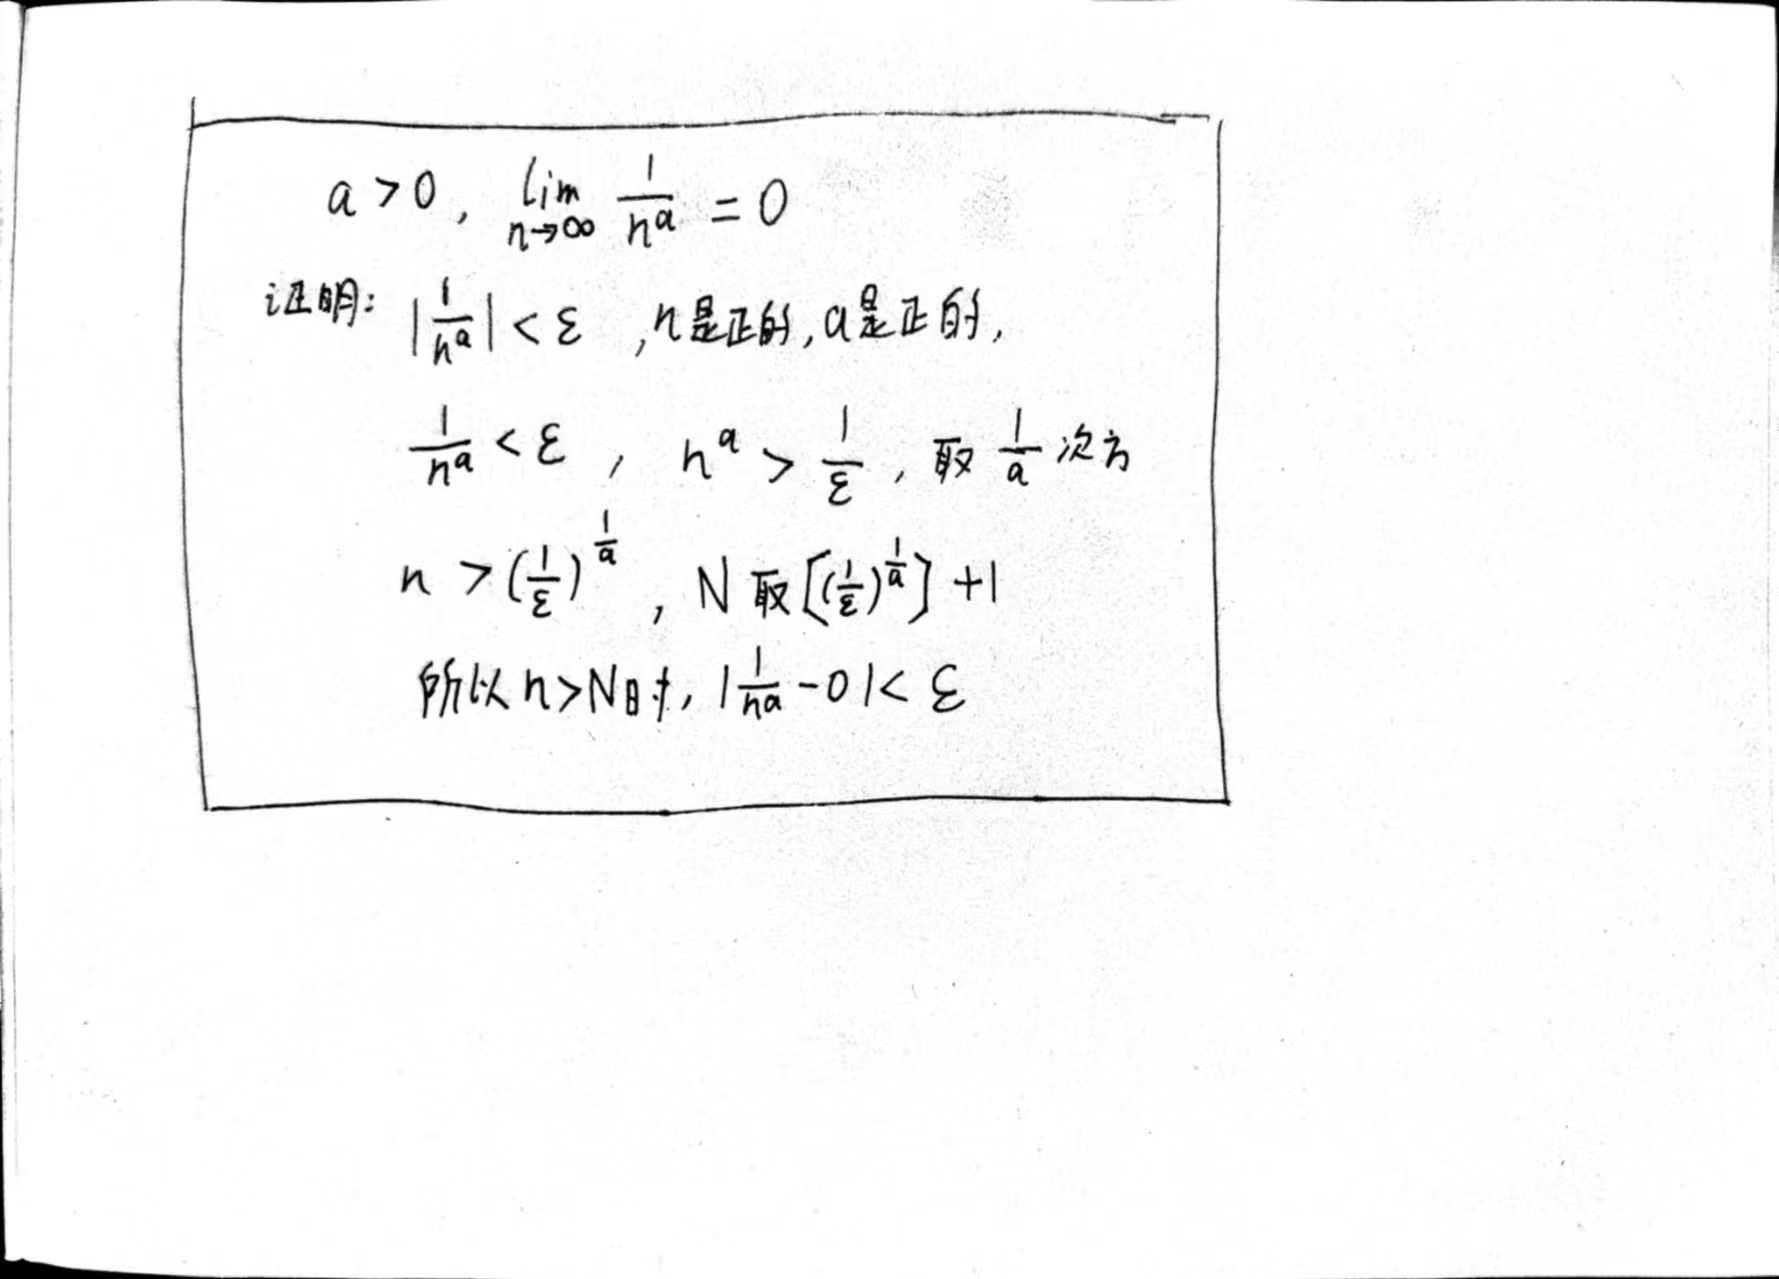 a > 0, lim_{n→∞} 1/n^a = 0
证明: |1/n^a| < ε ,n是正的,a是正的,
1/n^a < ε , n^a > 1/ε , 取 1/a 次方
n > (1/ε)^{1/a} , N取[(1/ε)^{1/a}]+1
所以n>N时, |1/n^a - 0| < ε